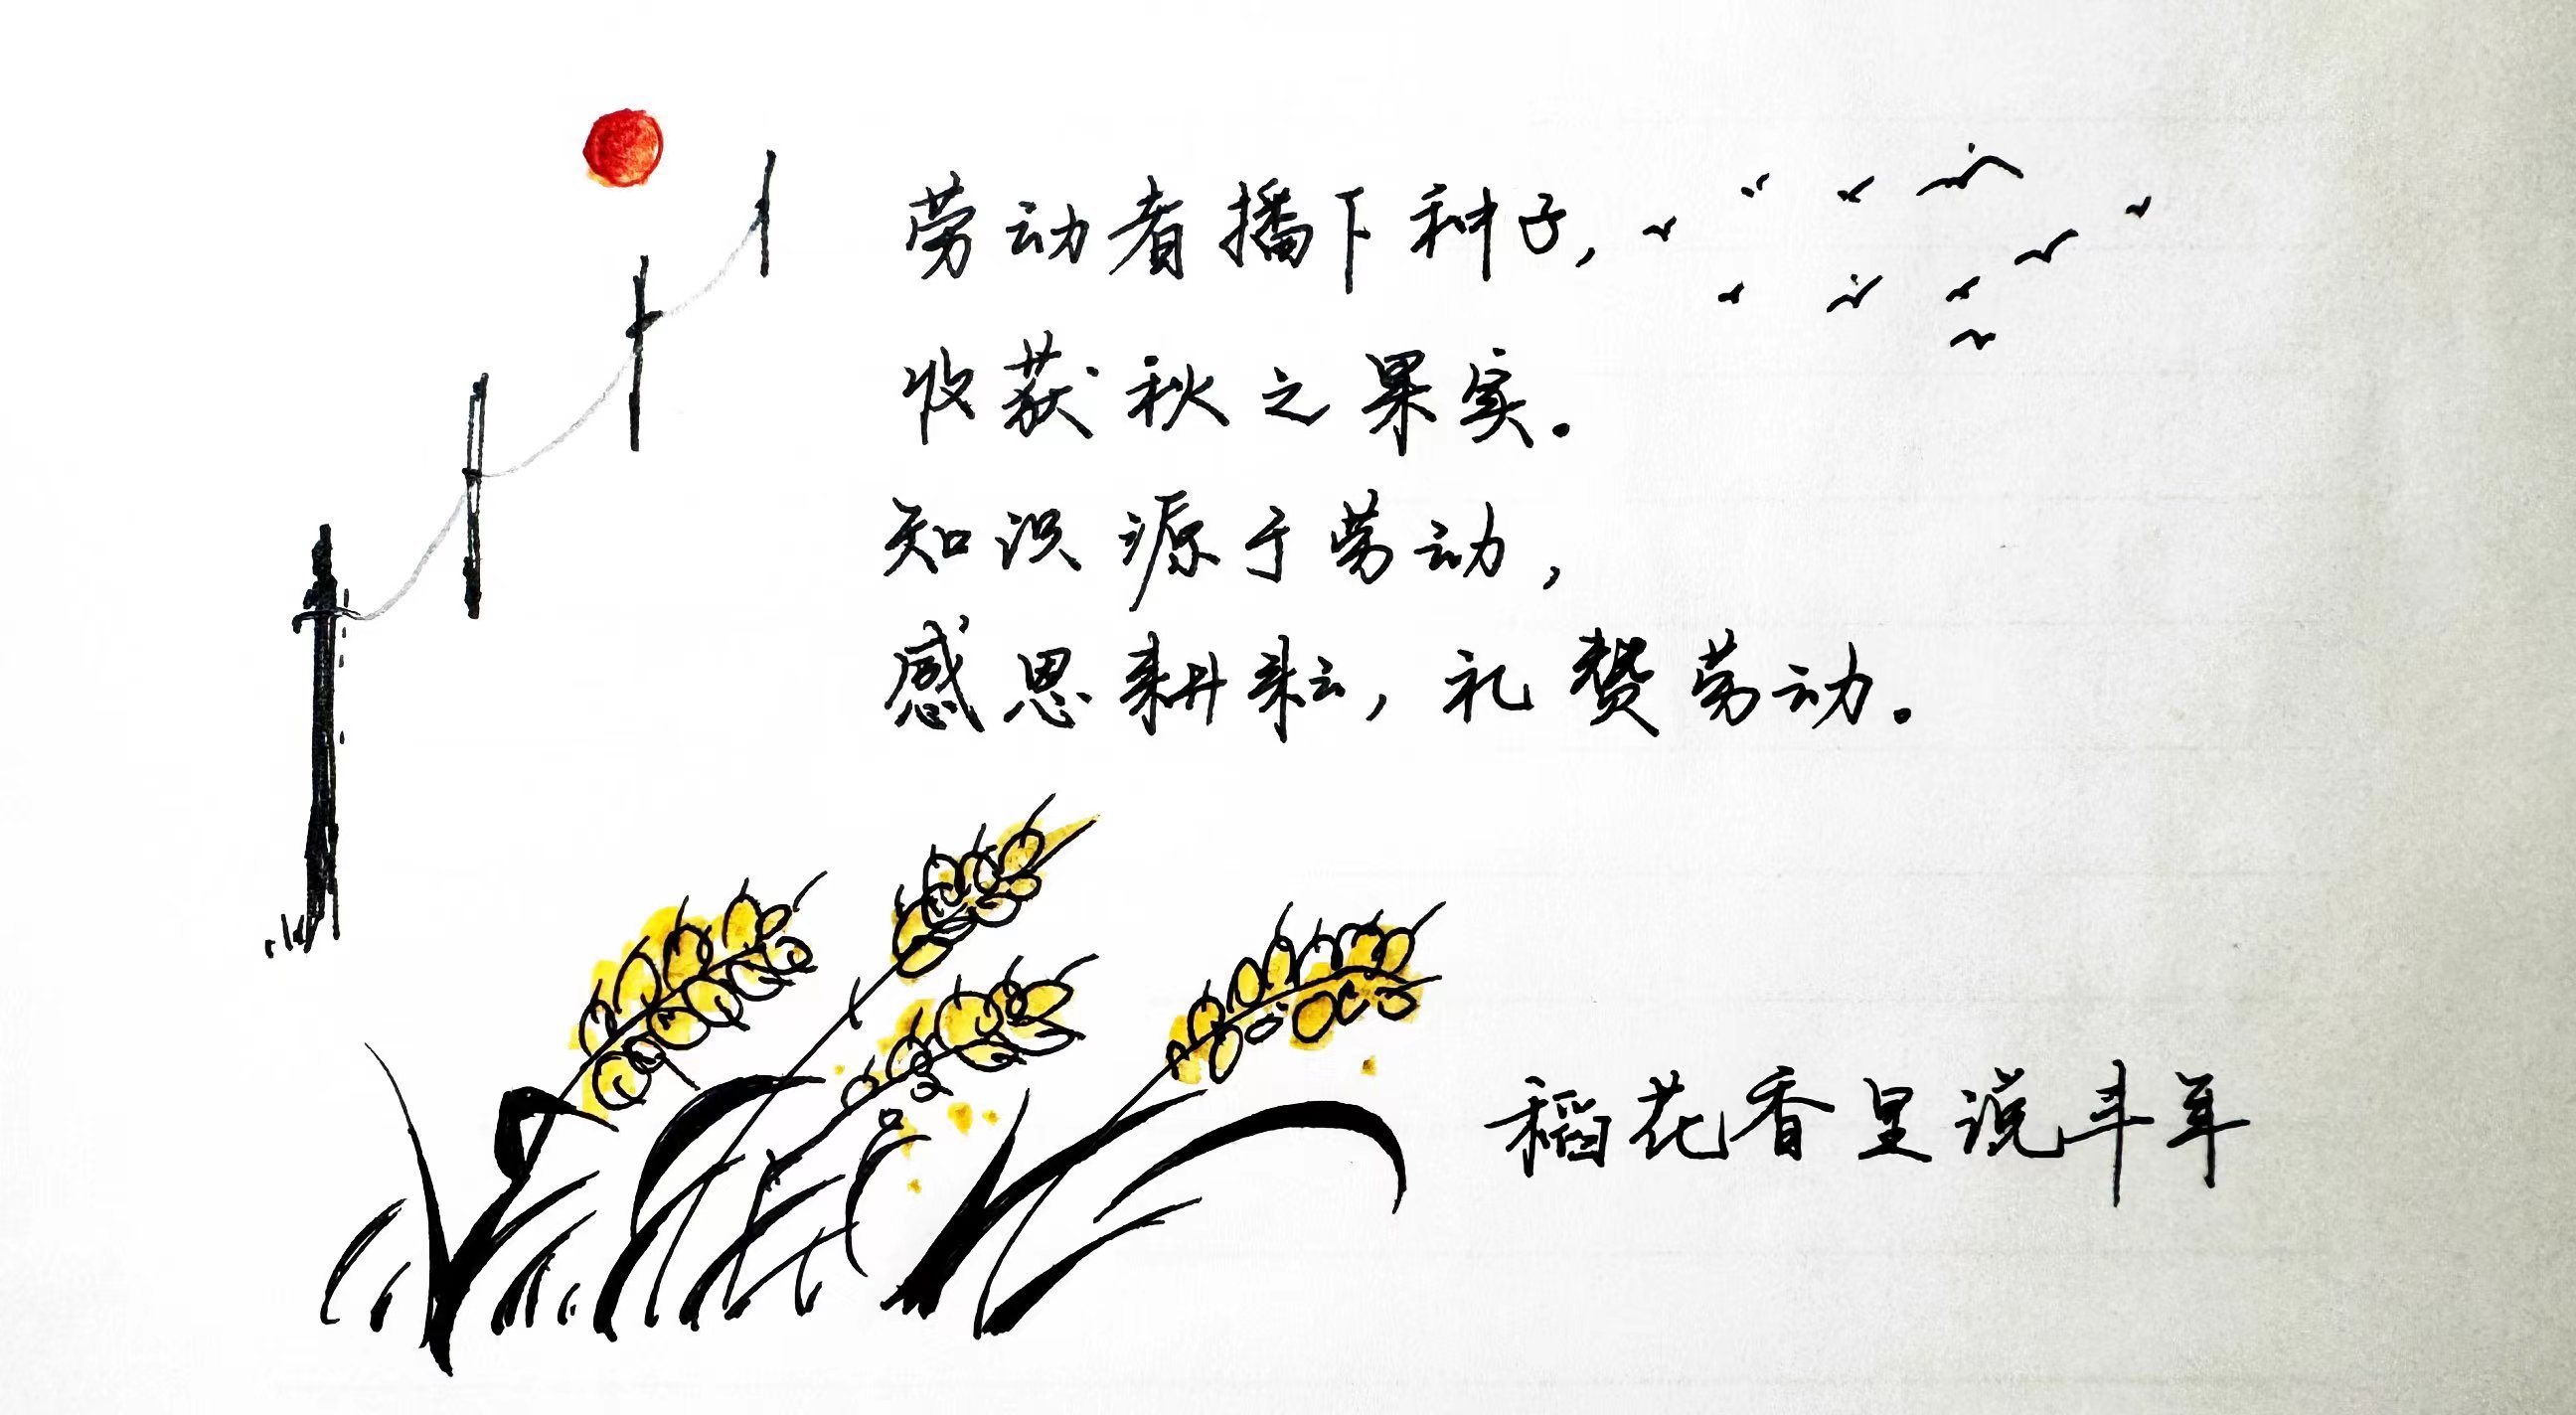 劳动者播下种子,
收获秋之果实.
知识源于劳动,
感恩耕耘,礼赞劳动.
稻花香里说丰年